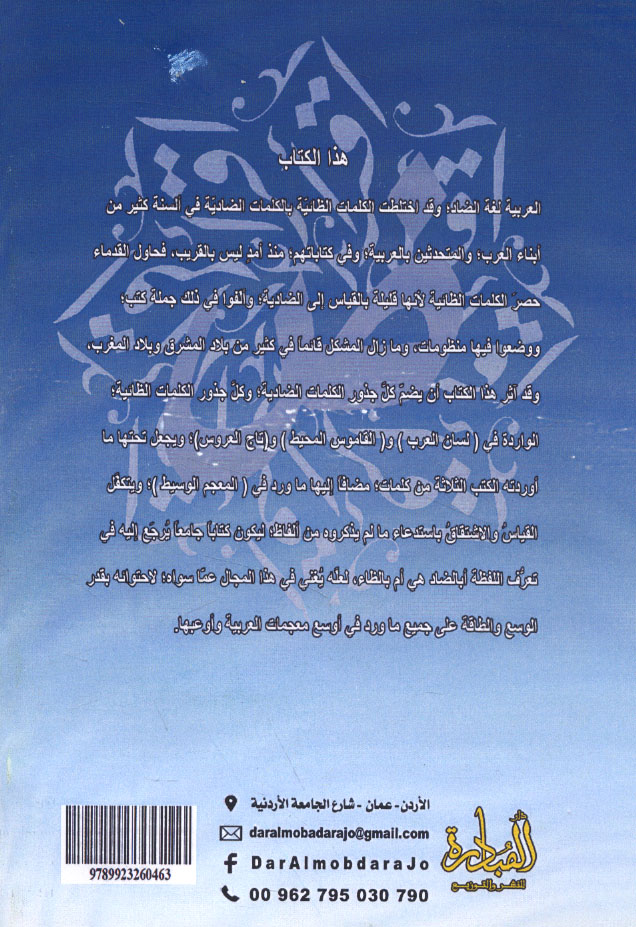 هذا الكتاب
العربية لغة الضاد؛ وقد اختلطت الكلمات الظائيّة بالكلمات الضاديّة في ألسنة كثير من
أبناء العرب؛ والمتحدثين بالعربية؛ وفي كتاباتهم؛ منذ أمدٍ ليس بالقريب، فحاول القدماء
حصرَ الكلمات الظائية لأنها قليلة بالقياس إلى الضادية؛ وألفوا في ذلك جملة كتب؛
ووضعوا فيها منظومات، وما زال المشكل قائماً في كثير من بلاد المشرق وبلاد المغرب،
وقد آثر هذا الكتاب أن يضمّ كلَّ جذور الكلمات الضادية؛ وكلَّ جذور الكلمات الظائية؛
الواردة في ( لسان العرب ) و( القاموس المحيط ) و(تاج العروس)؛ ويجعل تحتها ما
أوردته الكتب الثلاثة من كلمات؛ مضافاً إليها ما ورد في ( المعجم الوسيط )؛ ويتكفّل
القياسُ والاشتقاقُ باستدعاء ما لم يذكروه من ألفاظ؛ ليكون كتاباً جامعاً يُرجَع إليه في
تعرُّف اللفظة أبالضاد هي أم بالظاء، لعلّه يُغني في هذا المجال عمّا سواه؛ لاحتوائه بقدر
الوسع والطاقة على جميع ما ورد في أوسع معجمات العربية وأوعبها.
الأردن- عمان - شارع الجامعة الأردنية
daralmobadarajo@gmail.com
DarAlmobdaraJo
00 962 795 030 790
دار
المُبادرة
للنشر والتوزيع
9789923260463